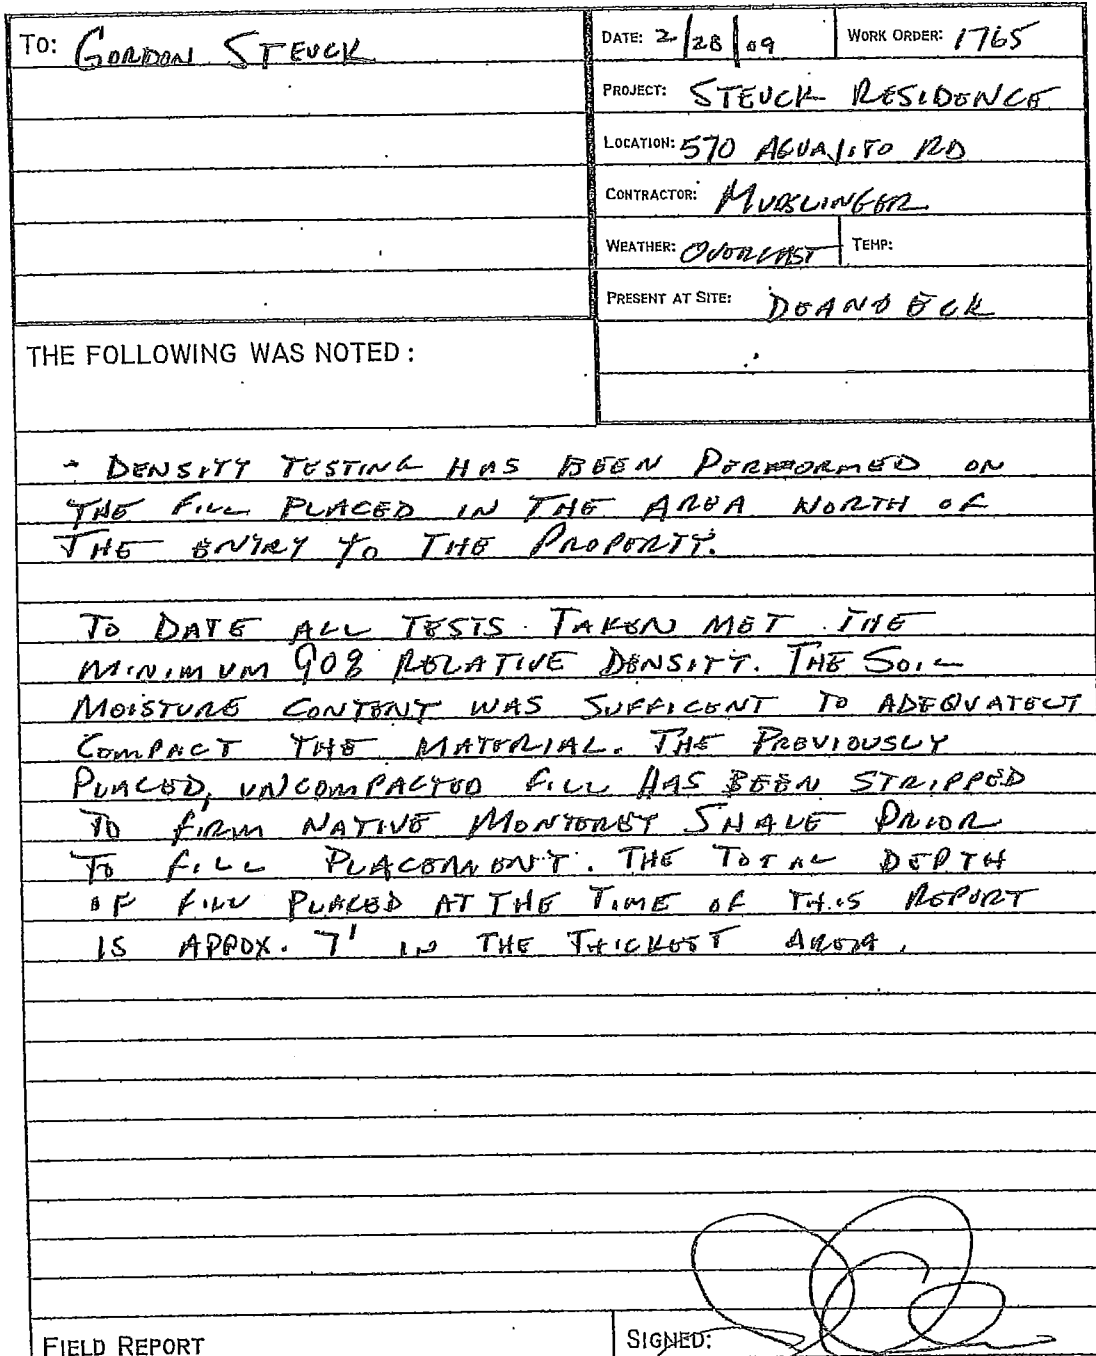 TO: GORDON STEUCK
DATE: 2/28/09 WORK ORDER: 1765
PROJECT: STEUCK RESIDENCE
LOCATION: 570 AGUAJITO RD
CONTRACTOR: MUDSLINGER
WEATHER: OVERCAST TEMP:
PRESENT AT SITE: DEANO ECK
THE FOLLOWING WAS NOTED:
- DENSITY TESTING HAS BEEN PERFORMED ON
THE FILL PLACED IN THE AREA NORTH OF
THE ENTRY TO THE PROPERTY.
TO DATE ALL TESTS TAKEN MET THE
MINIMUM 90% RELATIVE DENSITY. THE SOIL
MOISTURE CONTENT WAS SUFFICENT TO ADEQUATELY
COMPACT THE MATERIAL. THE PREVIOUSLY
PLACED, UNCOMPACTED FILL HAS BEEN STRIPPED
TO FIRM NATIVE MONTEREY SHALE PRIOR
TO FILL PLACEMENT. THE TOTAL DEPTH
OF FILL PLACED AT THE TIME OF THIS REPORT
IS APPOX. 7' IN THE THICKEST AREA.
FIELD REPORT
SIGNED: